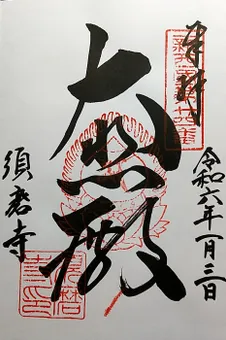 奉拝
令和六年一月三日
大悲殿
須磨寺